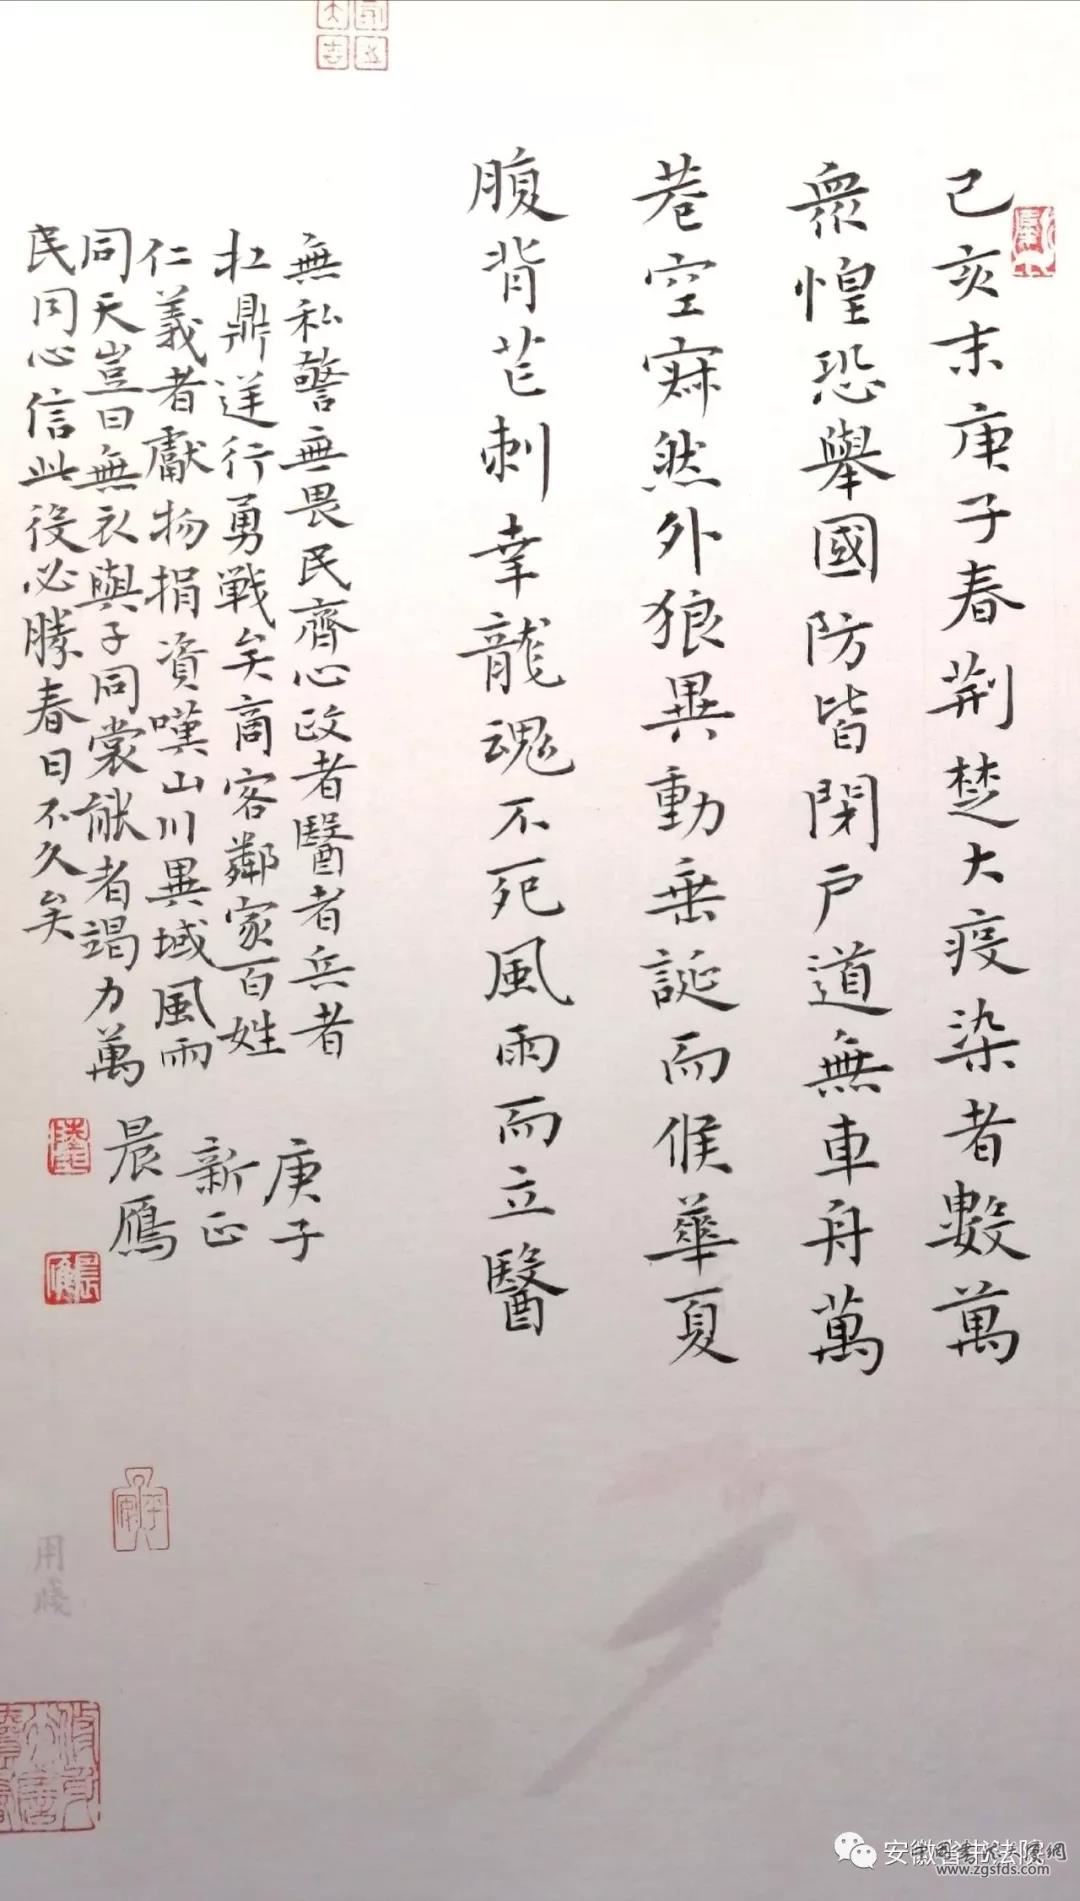 己亥末庚子春荆楚大疫染者數萬
眾惶恐舉國防皆閉戶道無車舟萬
巷空寂然外狼異動乖誕而候華夏
腹背芒刺幸龍魂不死風雨而立醫
無私警無畏民齊心政者醫者兵者
扛鼎逆行勇戰矣商客鄰家百姓
仁義者獻物捐資嘆山川異域風雨
同天豈曰無衣與子同裳能者竭力萬
民同心信此役必勝春日不久矣
庚子
新正
晨雁
用牋
安徽省书法院
www.zgsfds.com